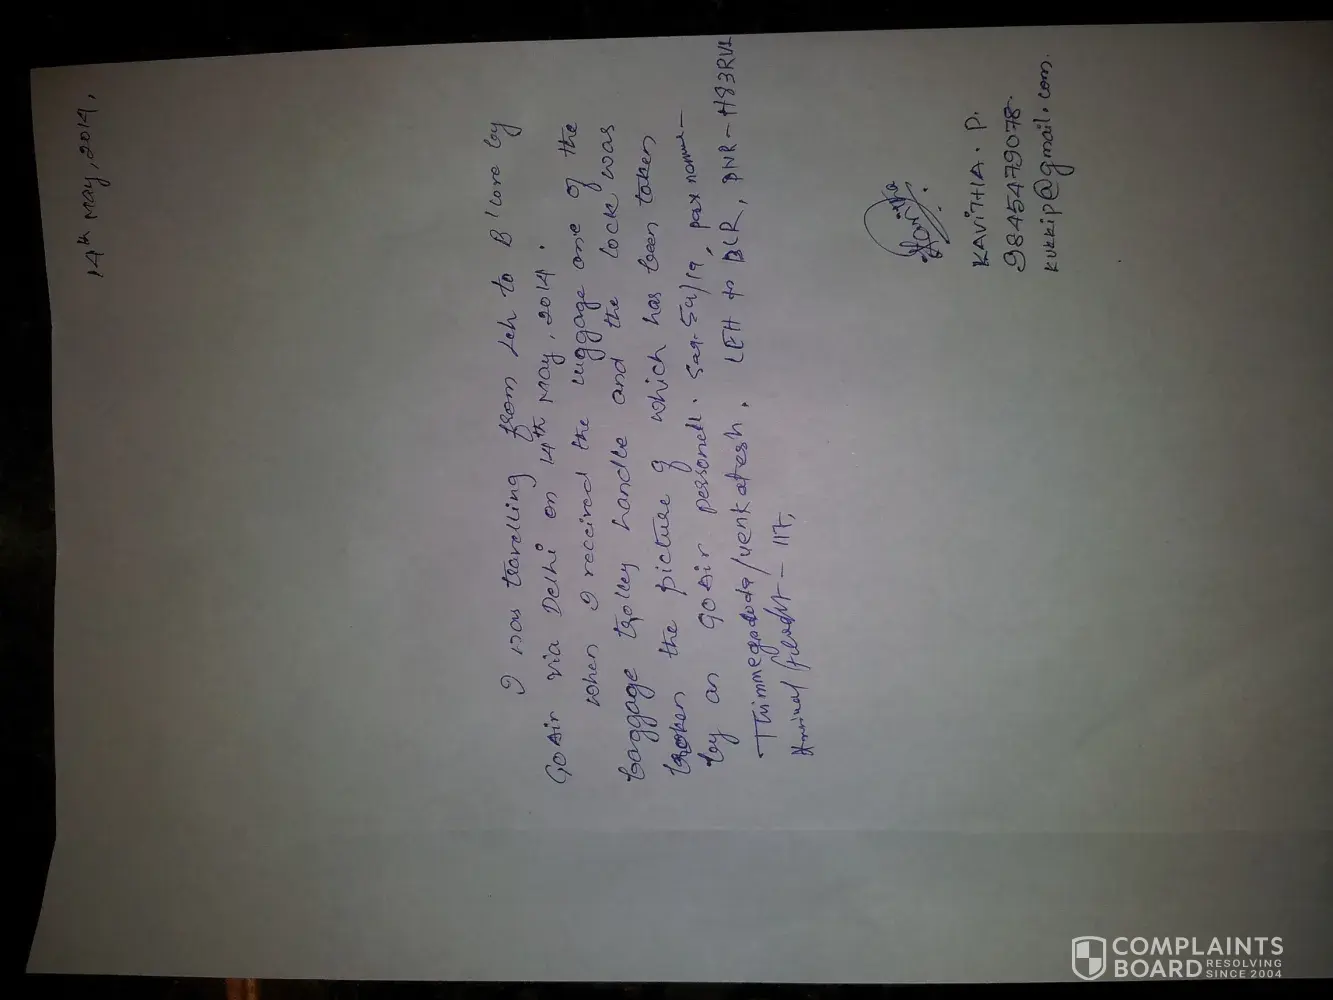 14th May, 2014,
I was travelling from Leh to B'lore by
GoAir via Delhi on 14th May, 2014.
When I received the luggage one of the
baggage trolley handle and the lock was
broken the picture of which has been taken
by an GoAir personell. Seq. pax name -
Thimmegowda/Venkatesh. LEH to BLR, PNR - H83RVL
- 117.
KAVITHA. P.
9845479078.
kukkip@gmail.com.
COMPLAINTS
BOARD RESOLVING
SINCE 2004